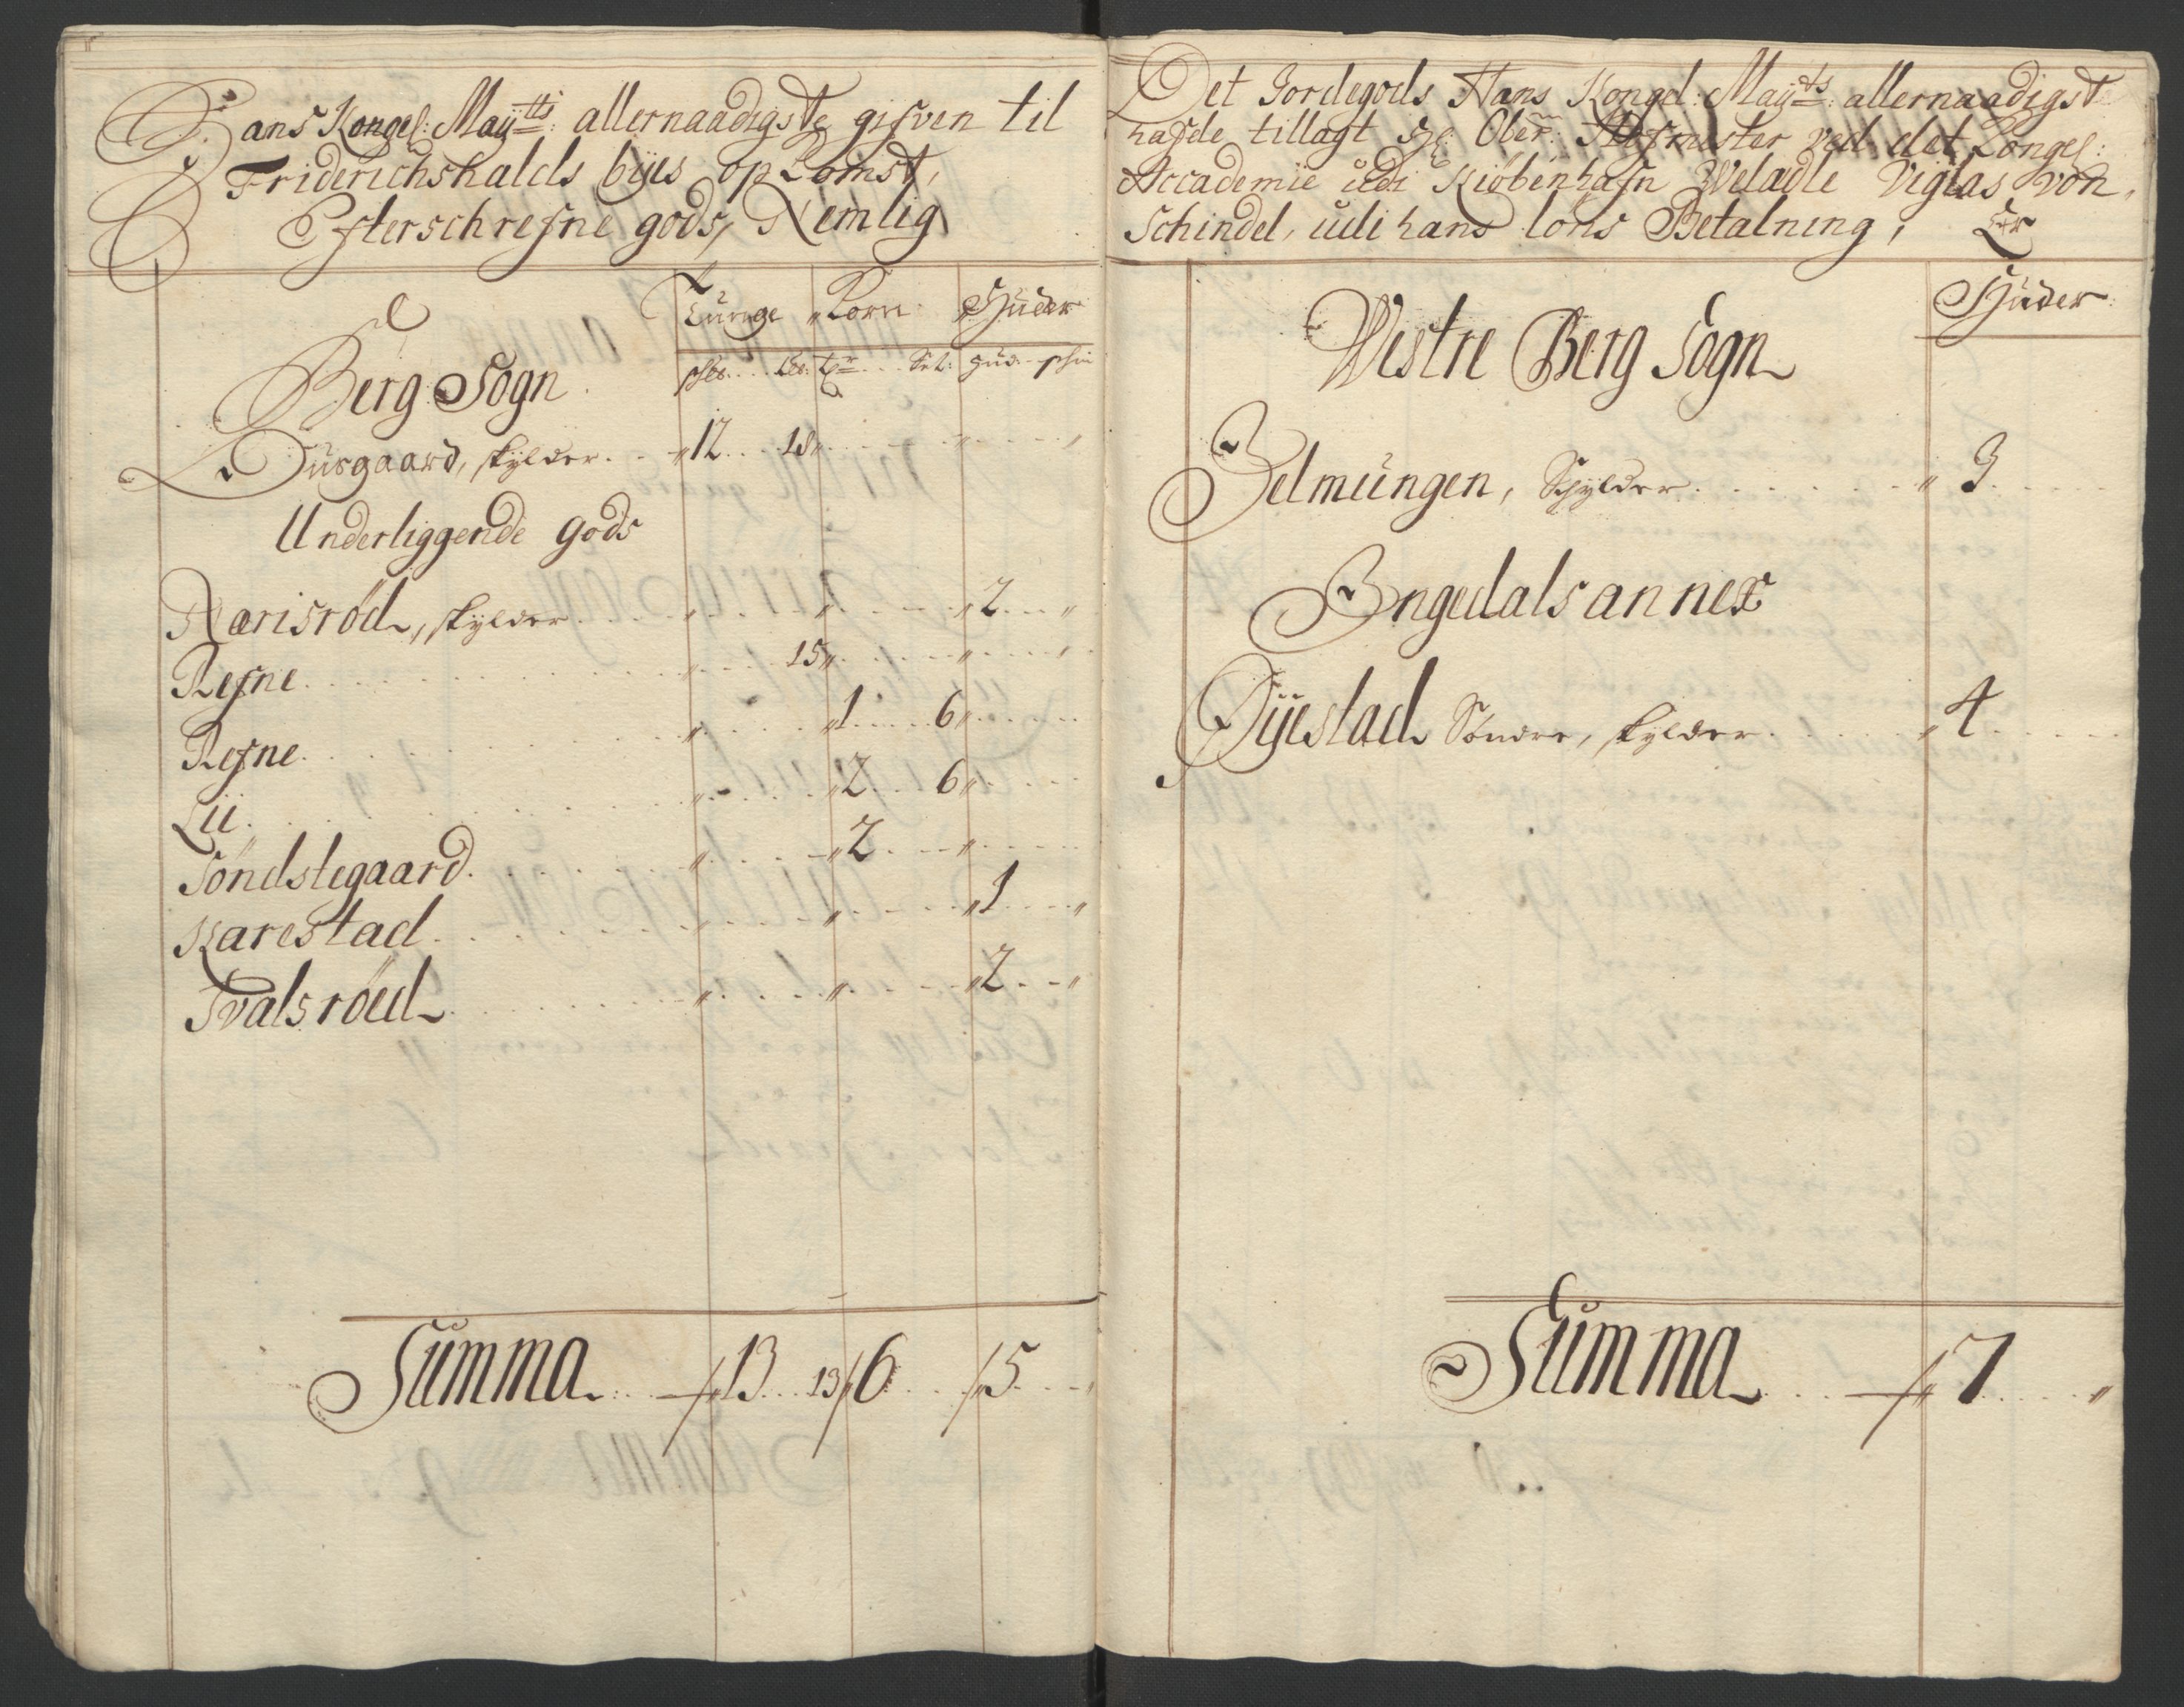 Hans Kongel: Maÿtts: allernaadigste gifven til
Friderichshalds bÿes opkomst,
Efterschrefne gods, Nemlig
Tünge Korn Hüder
Berg Sogn
sk℔. ℔. Tr Set: Hud. skin
Büsgaard, skÿlder. 12 18
Underliggende gods
Rørisrød, skÿlder 2
Refne 15
Refne 1 6
Lii 2 6
Söndstegaard. 2
Karestad 1
Tvalsröed 2
Summa 13 13 6 5
Det Jordegods Hans Kongel: Maÿts: allernaadigst
hafde tillagt Hr: Ober Hofmester ved det kongel:
Accademie üdi Kiöbenhafn Weladle Viglas von
Schindel, üdi hans löns Betalning, Er
Hüder
Westre Berg Sogn
Helmüngen, Schÿlder 3
Ingedals annex
Öÿestad Söndre, skÿlder 4
Summa 7